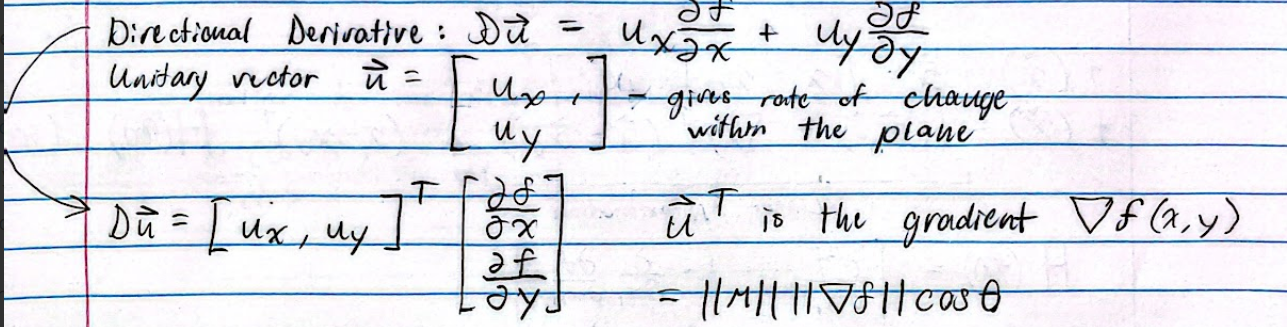 Directional Derivative : D𝑢⃗ = uₓ ∂f/∂x + u_y ∂f/∂y
Unitary vector u⃗ = [ uₓ , u_y ] - gives rate of change within the plane
Du⃗ = [ uₓ , u_y ]ᵀ [ ∂f/∂x ∂f/∂y ] u⃗ᵀ is the gradient ∇f(x,y)
= ||M|| ||∇f|| cos θ